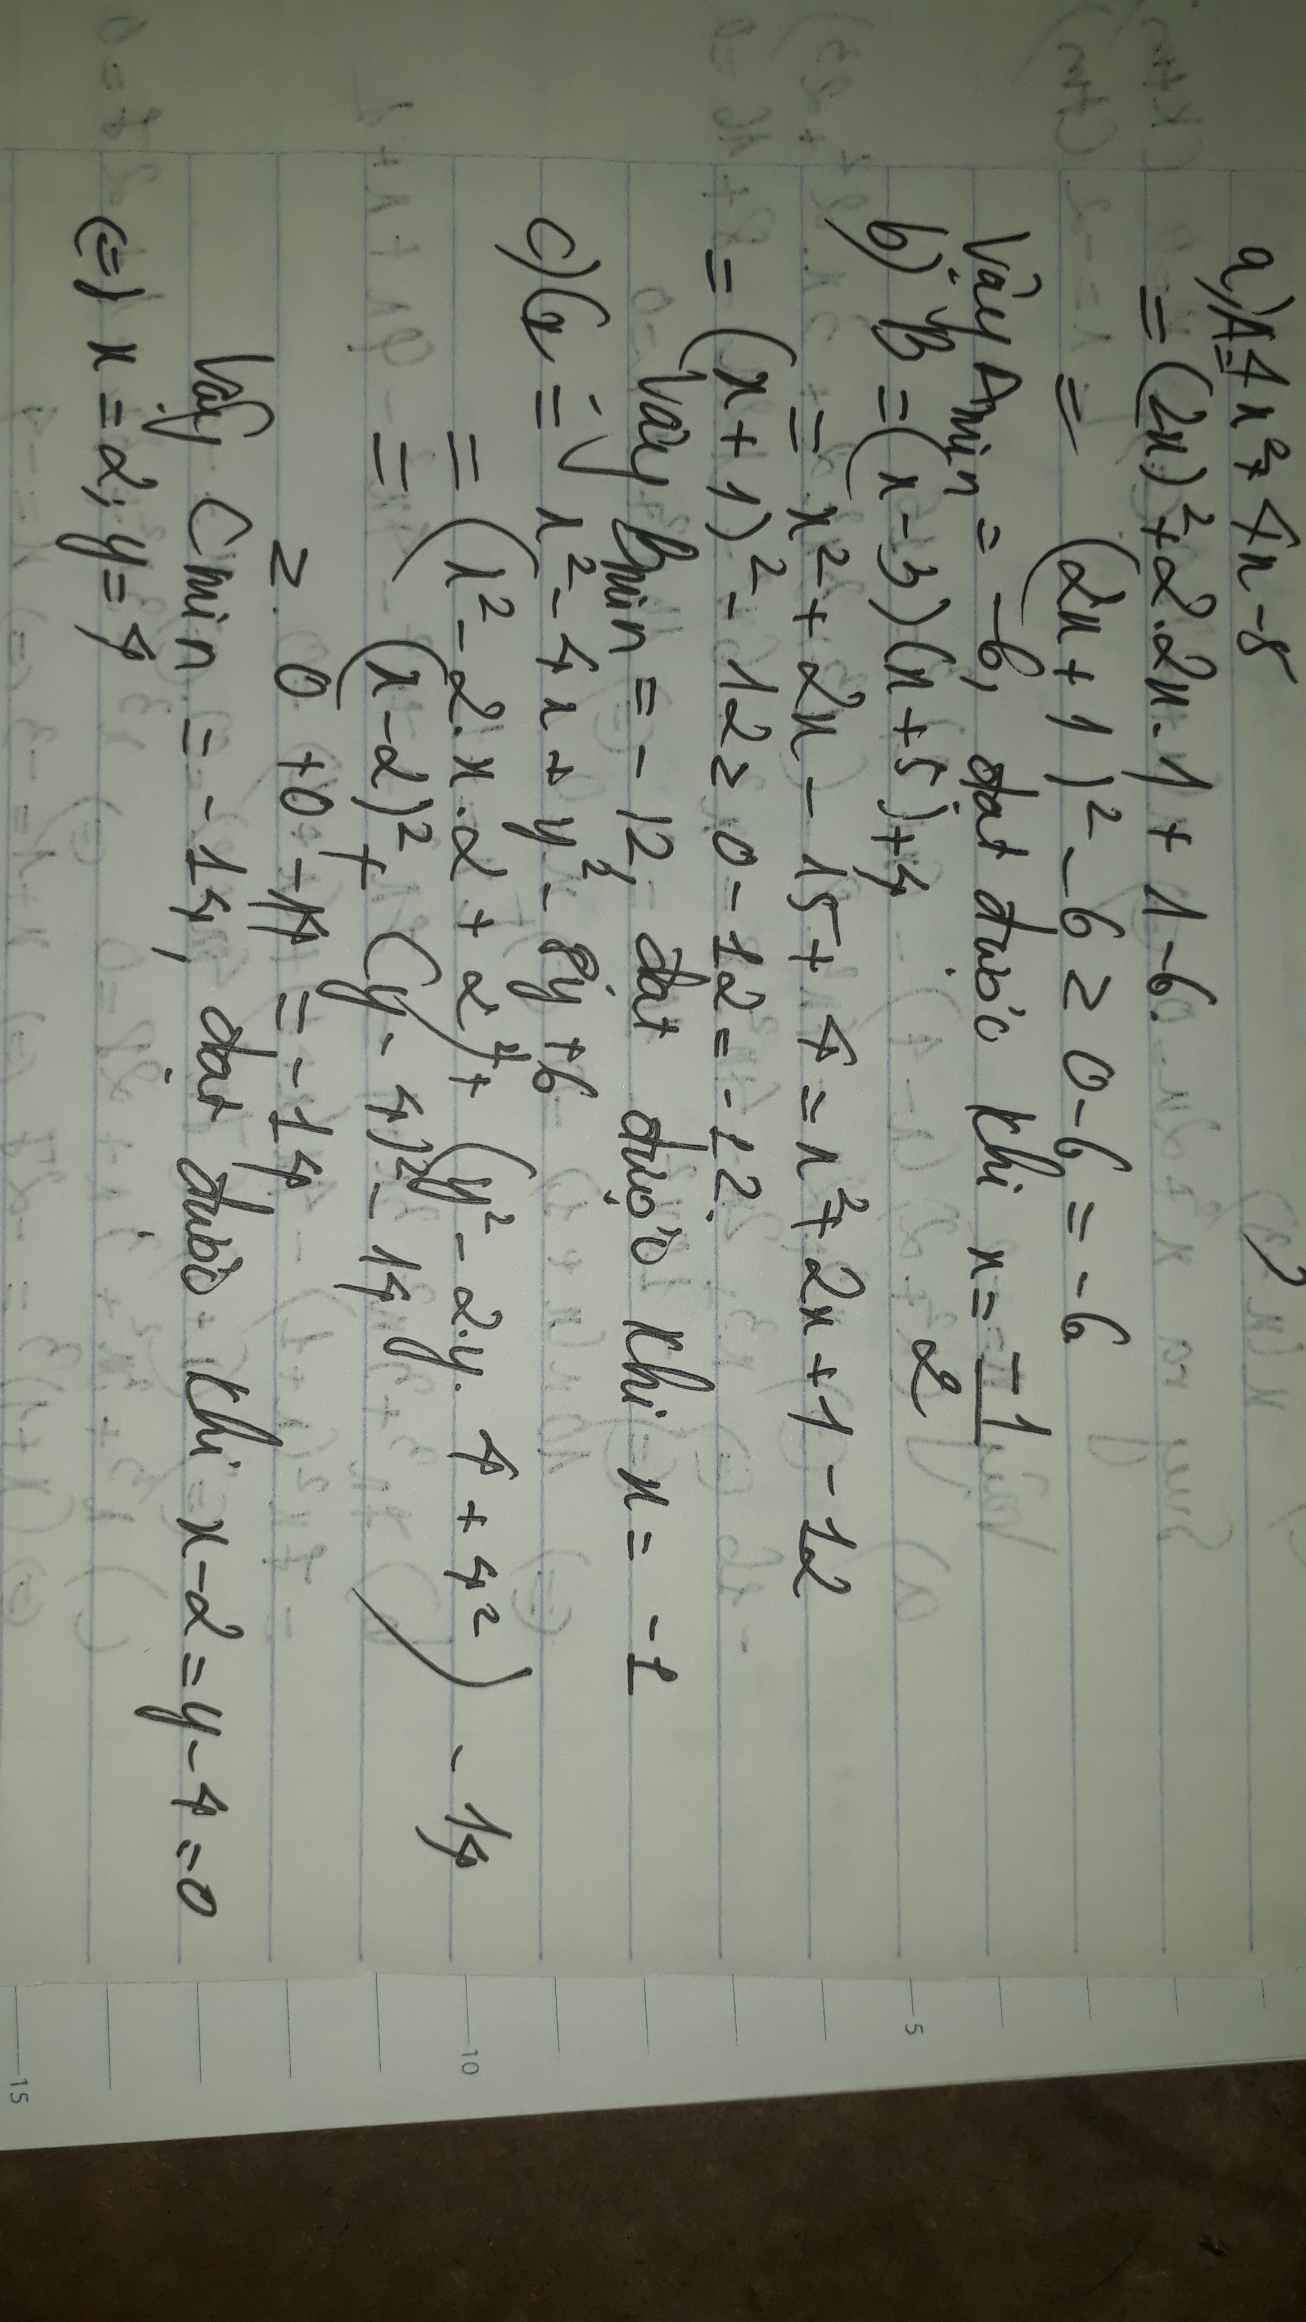 a) A = 4x² + 4x - 5
= (2x)² + 2.2x.1 + 1 - 6.
= (2x + 1)² - 6 ≥ 0 - 6 = -6
Vậy Amin = -6, đạt được khi x = -1/2
b) B = (x - 3)(x + 5) + 4
= x² + 2x - 15 + 4 = x² + 2x + 1 - 12
= (x + 1)² - 12 ≥ 0 - 12 = -12.
Vậy Bmin = -12, đạt được khi x = -1
c) G = x² - 4x + y² - 8y + 6
= (x² - 2.x.2 + 2²) + (y² - 2.y.4 + 4²) - 14
= (x - 2)² + (y - 4)² - 14
≥ 0 + 0 - 14 = -14
Vậy Cmin = -14, đạt được khi x - 2 = y - 4 = 0
(=) x = 2; y = 4
5
10
15